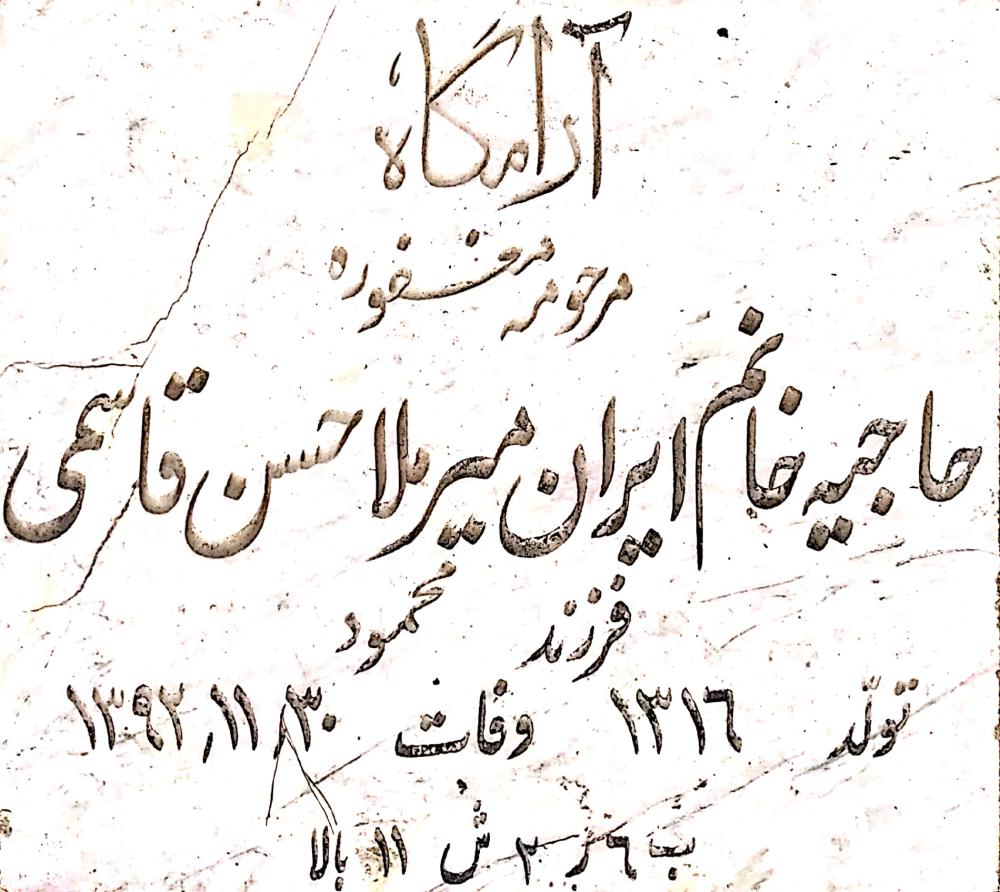 آرامگاه
مرحومه مغفوره
حاجیه خانم ایران میرملاحسن قاسمی
فرزند محمود
تولّد ۱۳۱۶ وفات ۱۳۹۲٫۱۱٫۳۰
ب ۶ ر ۲ ش ۱۱ بالا